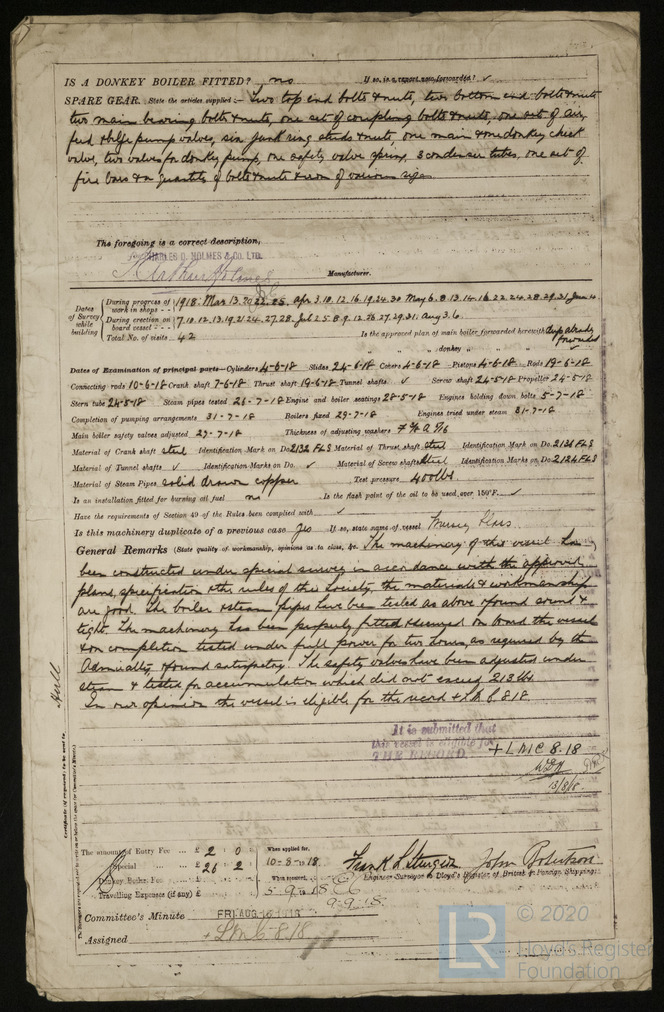 IS A DONKEY BOILER FITTED? no If so, is a report now forwarded? ✓
SPARE GEAR. State the articles supplied:— Two top end bolts & nuts, two bottom end bolts & nuts
two main bearing bolts & nuts, one set of coupling bolts & nuts, one set of air,
feed & bilge pump valves, six junk ring studs & nuts, one main & one donkey check
valve, two valves for donkey pump, one safety valve spring, 3 condenser tubes, one set of
fire bars & a quantity of bolts & nuts & iron of various sizes.
The foregoing is a correct description,
CHARLES D. HOLMES & CO. LTD.
Manufacturer.
Dates of Survey while building
During progress of work in shops - - 1918: Mar 13. 20. 22. 25. Apr 3. 10. 12. 16. 19. 24. 30 May 6. 8. 13. 14. 16 22. 24. 28. 29. 31. June 4.
During erection on board vessel - - - 7. 10. 12. 13. 19. 21. 24. 27. 28. Jul 2. 5. 8. 9. 12. 26. 27. 29. 31. Aug 3. 6.
Total No. of visits 42 Is the approved plan of main boiler forwarded herewith
" " " donkey " " "
Dates of Examination of principal parts—Cylinders 4-6-18 Slides 24-6-18 Covers 4-6-18 Pistons 4-6-18 Rods 19-6-18
Connecting rods 10-6-18 Crank shaft 7-6-18 Thrust shaft 19-6-18 Tunnel shafts ✓ Screw shaft 24-5-18 Propeller 24-5-18
Stern tube 24-5-18 Steam pipes tested 26-7-18 Engine and boiler seatings 28-5-18 Engines holding down bolts 5-7-18
Completion of pumping arrangements 31-7-18 Boilers fixed 29-7-18 Engines tried under steam 31-7-18
Main boiler safety valves adjusted 29-7-18 Thickness of adjusting washers
Material of Crank shaft steel Identification Mark on Do. 2132 FLS Material of Thrust shaft steel Identification Mark on Do. 2136 FLS
Material of Tunnel shafts ✓ Identification Marks on Do. ✓ Material of Screw shafts steel Identification Marks on Do. 2124 FLS
Material of Steam Pipes solid drawn copper Test pressure 400 lbs
Is an installation fitted for burning oil fuel no Is the flash point of the oil to be used over 150°F. ✓
Have the requirements of Section 49 of the Rules been complied with ✓
Is this machinery duplicate of a previous case Yes If so, state name of vessel
General Remarks (State quality of workmanship, opinions as to class, &c. The machinery of this vessel has
been constructed under special survey in accordance with the approved
plans, specification & the rules of this Society, the materials & workmanship
are good. The boiler & steam pipes have been tested as above & found sound &
tight. The machinery has been properly fitted & secured on board the vessel
& on completion tested under full power for two hours, as required by the
Admiralty, & found satisfactory. The safety valves have been adjusted under
steam & tested for accumulation which did not exceed 213 lbs.
In our opinion the vessel is eligible for the record + LMC 8.18
It is submitted that
this vessel is eligible for
THE RECORD. + LMC 8.18
13/8/18
Hull
Certificate (if required) to be sent to
The amount of Entry Fee .. £ 2 : 0 : When applied for,
Special ... £ 26 : 2 : 10-8-1918
Donkey Boiler Fee ... £ : : When received,
Travelling Expenses (if any) £ : : 5-9-1918
9-9-18
Frank L Sturgeon John Robertson
Engineer Surveyor to Lloyd's Register of British & Foreign Shipping.
Committee's Minute FRI. AUG. 16 1918
Assigned + LMC 8.18
© 2020
LR
Lloyd's Register
Foundation